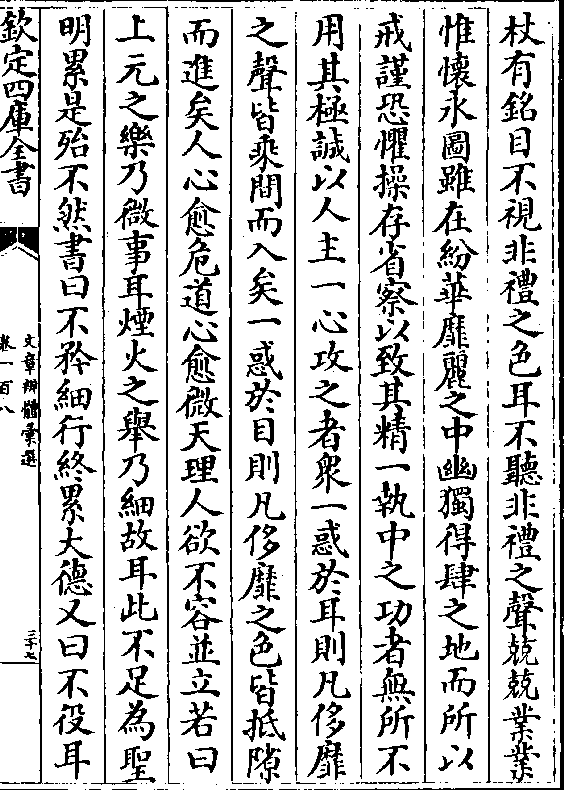 杖有銘目不視非禮之色耳不聽非禮之聲兢兢業業
惟懷永圖雖在紛華靡麗之中幽獨得肆之地而所以
戒謹恐懼操存省察以致其精一執中之功者無所不
用其極誠以人主一心攻之者衆一惑於耳則凡侈靡
之聲皆乘間而入矣一惑於目則凡侈靡之色皆抵隙
而進矣人心愈危道心愈微天理人欲不容並立若曰
上元之樂乃微事耳煙火之舉乃細故耳此不足為聖
明累是殆不然書曰不矜細行終累大德又曰不役耳
欽定四庫全書
文章辨體彙選
卷一百八
三十七